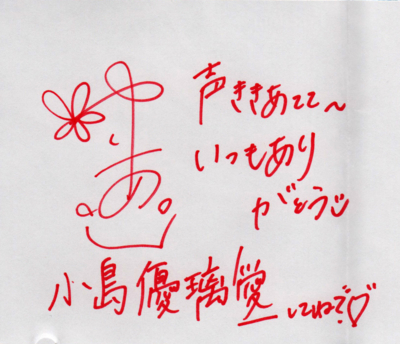 声ききあてて〜
いつもあり
がとう
小島優璃愛
してねで♡